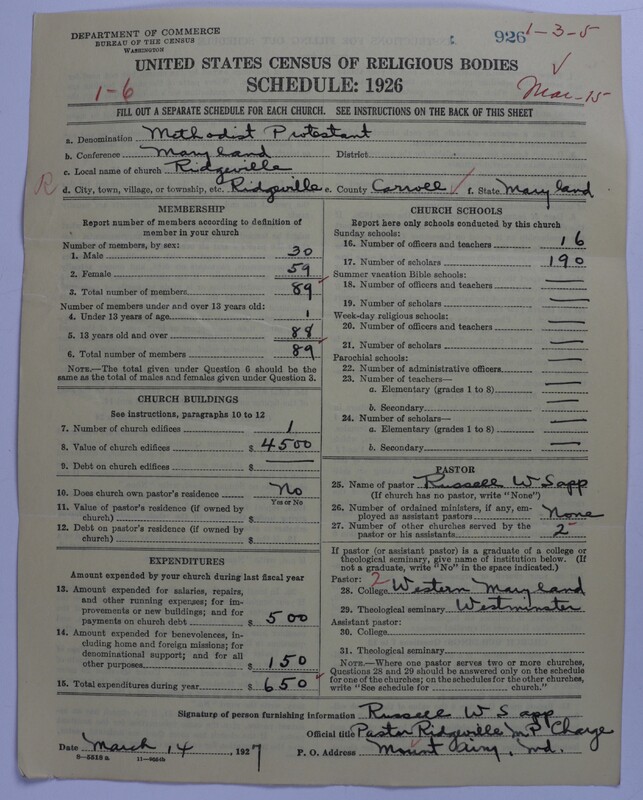 DEPARTMENT OF COMMERCE
BUREAU OF THE CENSUS
WASHINGTON
926
1-3-5
UNITED STATES CENSUS OF RELIGIOUS BODIES
SCHEDULE: 1926
1-6
Mar-15
FILL OUT A SEPARATE SCHEDULE FOR EACH CHURCH. SEE INSTRUCTIONS ON THE BACK OF THIS SHEET
a. Denomination Methodist Protestant
b. Conference Maryland District
c. Local name of church Ridgeville
R d. City, town, village, or township, etc. Ridgeville e. County Carroll f. State Maryland
MEMBERSHIP
Report number of members according to definition of
member in your church
Number of members, by sex:
1. Male 30
2. Female 59
3. Total number of members 89
Number of members under and over 13 years old:
4. Under 13 years of age 1
5. 13 years old and over 88
6. Total number of members 89
NOTE.—The total given under Question 6 should be
the same as the total of males and females given under Question 3.
CHURCH BUILDINGS
See instructions, paragraphs 10 to 12
7. Number of church edifices 1
8. Value of church edifices $ 4500
9. Debt on church edifices $ —
10. Does church own pastor's residence No
Yes or No
11. Value of pastor's residence (if owned by
church) $
12. Debt on pastor's residence (if owned by
church) $
EXPENDITURES
Amount expended by your church during last fiscal year
13. Amount expended for salaries, repairs,
and other running expenses; for im-
provements or new buildings; and for
payments on church debt $ 500
14. Amount expended for benevolences, in-
cluding home and foreign missions; for
denominational support; and for all
other purposes $ 150
15. Total expenditures during year $ 650
CHURCH SCHOOLS
Report here only schools conducted by this church
Sunday schools:
16. Number of officers and teachers 16
17. Number of scholars 190
Summer vacation Bible schools:
18. Number of officers and teachers —
19. Number of scholars —
Week-day religious schools:
20. Number of officers and teachers —
21. Number of scholars —
Parochial schools:
22. Number of administrative officers —
23. Number of teachers—
a. Elementary (grades 1 to 8) —
b. Secondary —
24. Number of scholars—
a. Elementary (grades 1 to 8) —
b. Secondary —
PASTOR
25. Name of pastor Russell W Sapp
(If church has no pastor, write "None")
26. Number of ordained ministers, if any, em-
ployed as assistant pastors None
27. Number of other churches served by the
pastor or his assistants 2
If pastor (or assistant pastor) is a graduate of a college or
theological seminary, give name of institution below. (If
not a graduate, write "No" in the space indicated.)
Pastor: 2
28. College Western Maryland
29. Theological seminary Westminster
Assistant pastor:
30. College
31. Theological seminary
NOTE.—Where one pastor serves two or more churches,
Questions 28 and 29 should be answered only on the schedule
for one of the churches; on the schedules for the other churches,
write "See schedule for church."
Signature of person furnishing information Russell W Sapp
Official title Pastor Ridgeville M P Charge
Date March 14, 1927 P. O. Address Mount Airy, Md.
8—5513 a